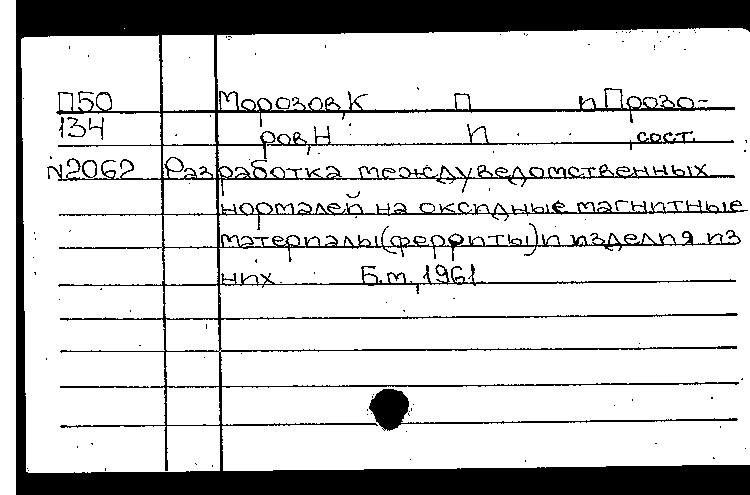 П50 Морозов, К П и Прозо-
134 ров, Н И , сост.
N2062 Разработка междуведомственных
нормалей на оксидные магнитные
материалы (ферриты) и изделия из
них Б.м., 1961